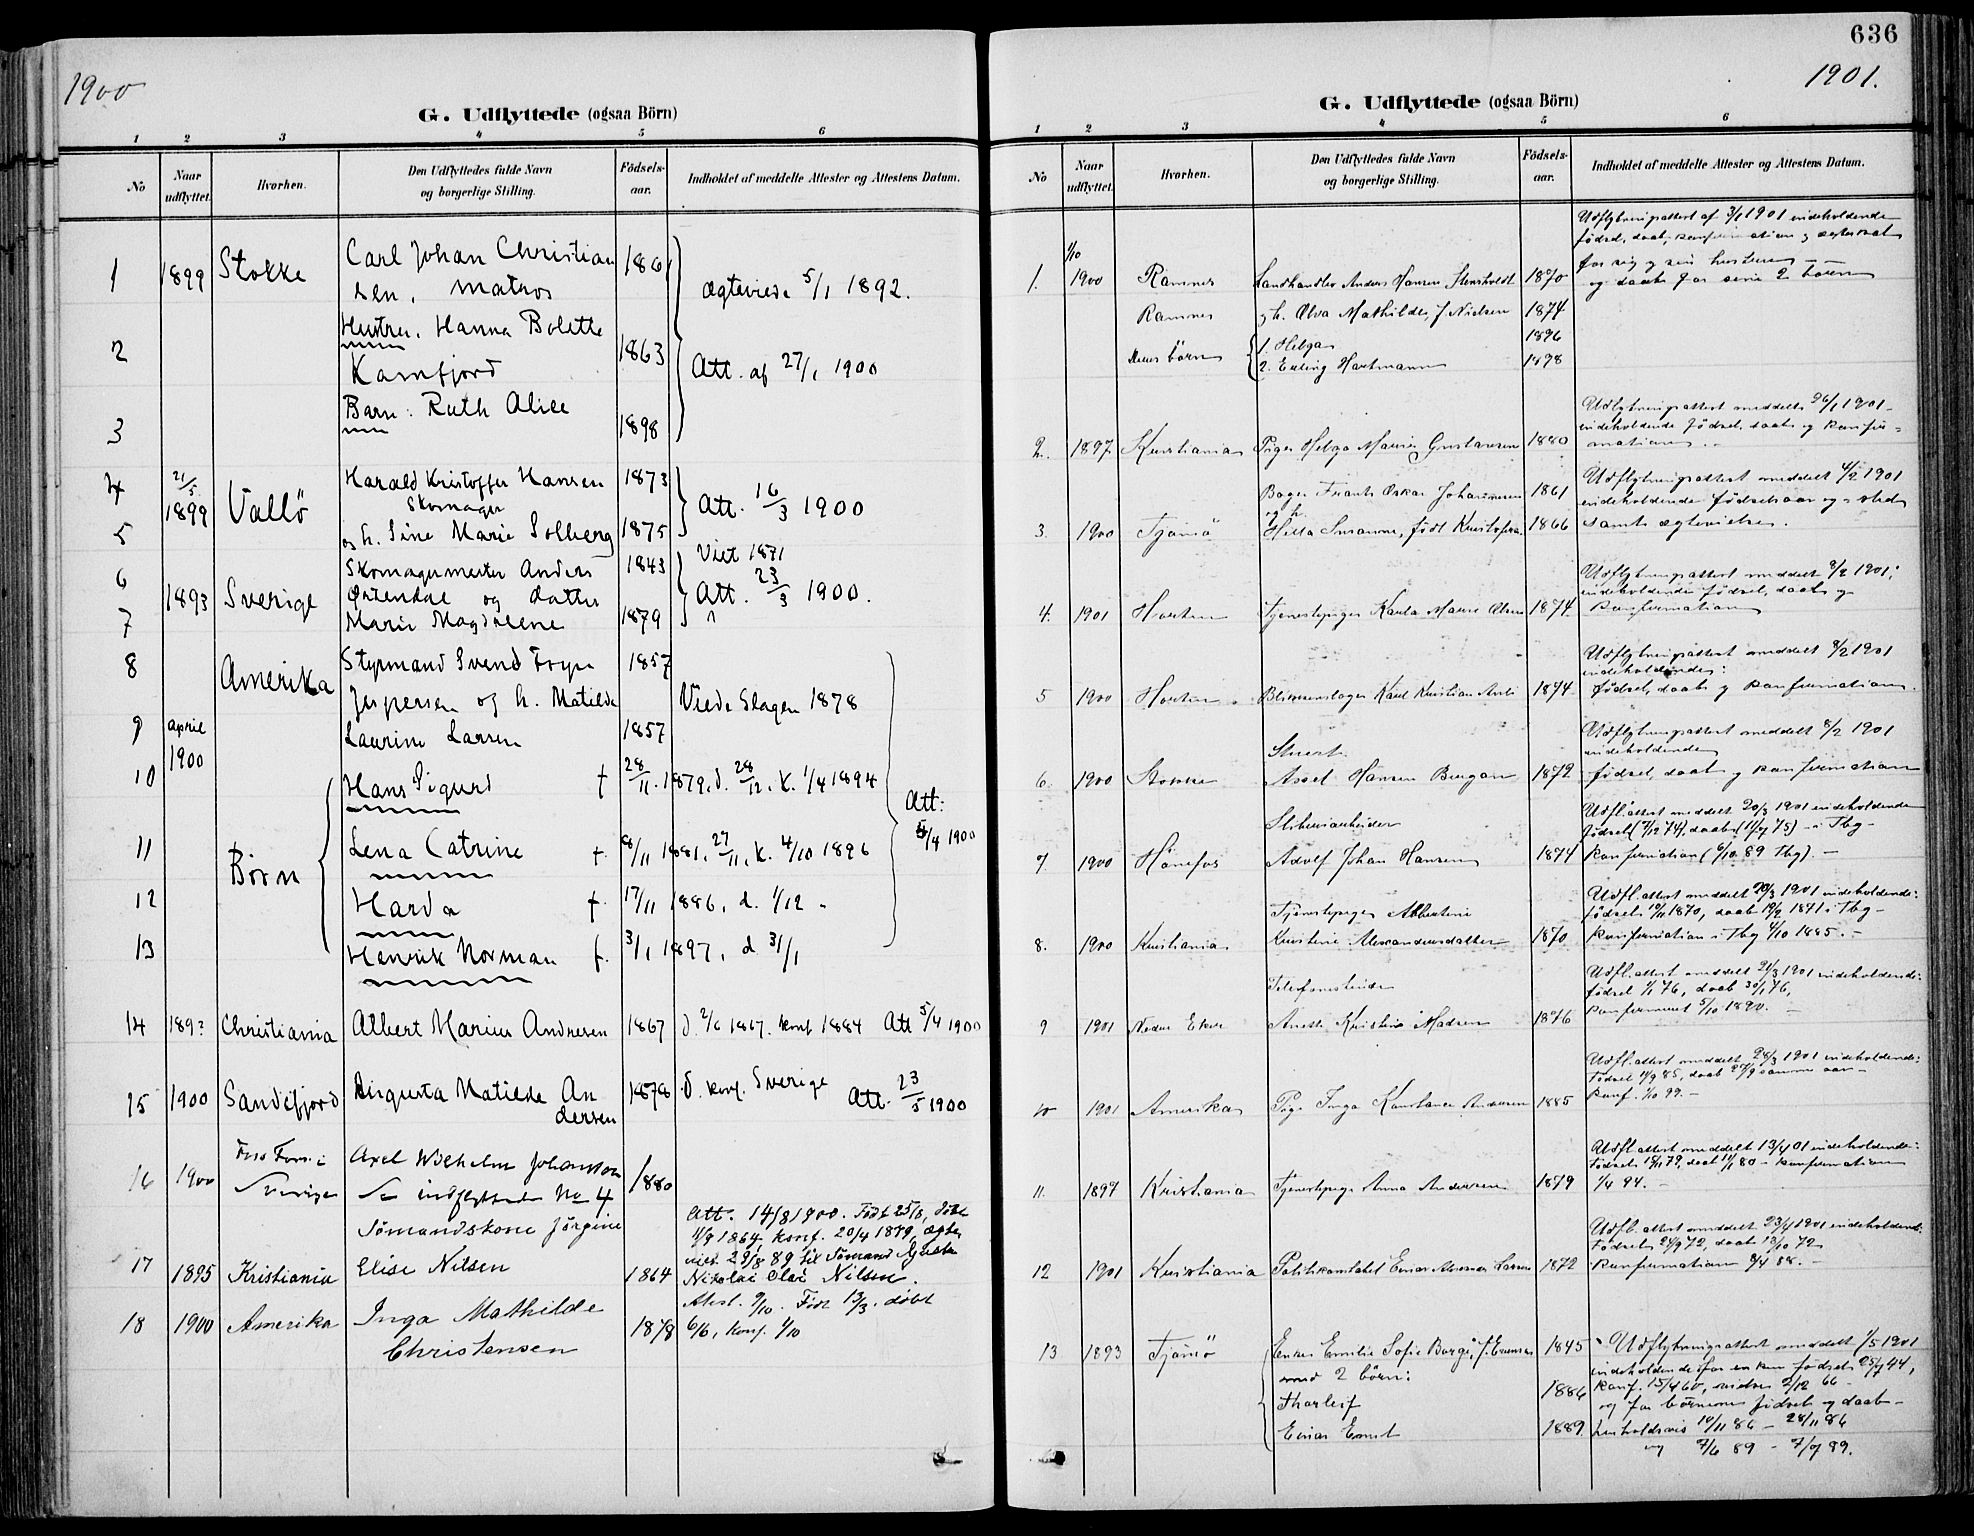 1900
G. Udflyttede (ogsaa Börn)
1 2 3 4 5 6
No
Naar udflyttet.
Hvorhen.
Den Udflyttedes fulde Navn og borgerlige Stilling.
Födsels-aar.
Indholdet af meddelte Attester og Attestens Datum.
1 1899 Stokke Carl Johan Christian 1861
sen, matros Ægteviede 5/1 1892.
Hustru, Hanna Bolette
2 Kamfjord 1863 Att. af 27/1 1900
Barn: Ruth Alice
3 1898
4 21/5 1899 Vallö Harald Kristoffer Hansen 1873
Skomager Att. 16/3 1900
5 og h. Sine Marie Solberg 1875
Viet 1871
6 1893 Sverige Skomagermester Anders 1843
Östendal og datter Att. 23/3 1900.
7 Marie Magdalene 1879
8 Amerika Styrmand Svend Foyn 1857
Jespersen og h. Matilde Viede Slagen 1878
9 april 1900 Laurine Larsen 1857
10 Börn Hans Sigurd f 28/11 1879, d. 28/12, K. 1/4 1894
Att: 5/4 1900
11 Lena Catrine f. 8/11 1881, 27/11, K. 4/10 1896
12 Harda f. 17/11 1886, d. 1/12 -
13 Henrik Norman f. 3/1 1897, d 31/1
14 189? Christiania Albert Marius Andresen 1867 d. 2/6 1867. Konf 1884 Att 5/4 1900
15 1900 Sandefjord Augusta Matilde An 1878 d. konf. Sverige
dersen Att. 23/5 1900
16 1900 Sverige Axel Wilhelm Johansson 1880
Se indflyttede No 4
Att. 14/8 1900. Födt 25/8, döbt
Sömandskone Jörgine 11/9 1864, Konf. 20/4 1879, ægte
17 1895 Kristiania Elise Nilsen 1864 viet 29/8 89 til Sömand
Nikolai Olai Nilsen.
18 1900 Amerika Inga Mathilde 1878 Attest. 9/10. Födt 13/3. döbt
Christensen 6/6, konf. 1/10
636
1901.
G. Udflyttede (ogsaa Börn)
1 2 3 4 5 6
No
Naar udflyttet.
Hvorhen.
Den Udflyttedes fulde Navn og borgerlige Stilling.
Födsels-aar.
Indholdet af meddelte Attester og Attestens Datum.
Udflytningsattest af 3/1 1901 indeholdende
födsel, daab, konfirmation og ægteskab
for sig og sin hustru
1. 1/10 1900 Ramnes Landhandler Anders Hansen Stensholdt 1870 og daab for sine 2 börn
Ramnes og h. Alva Mathilde, f. Nielsen 1874
börn 1. Helga 1896
2. Erling Hartmann 1898
Udflytningsattest meddelt 26/1 1901
indeholdende födsel, daab og konfir-
2. 1897 Kristiania Pige Helga Marie Gustavsen 1880 mation.
Udflytningsattest meddelt 4/2 1901
Bager Frants Oskar Johannesen 1861 indeholdende födselsaar og sted
og h.
3. 1900 Tjömö Hilda Susanne, födt 1866 samt ægtevielse.
Udflytningsattest meddelt 8/2 1901:
indeholdende födsel, daab og
4. 1901 Horten Tjenestepige Karla Marie Olsen 1874 konfirmation
Udflytningsattest meddelt 8/2 1901
indeholdende:
5 1900 Horten Karl Kristian 1874 födsel, daab og konfirmation.
Udflytningsattest meddelt 8/2 1901
indeholdende
6. 1900 Stokke Axel Hansen Bergan 1872 födsel, daab og konfirmation
Udfl. attest meddelt 20/3 1901 indeholdende
Sliberiarbeider födsel (7/12 74), daab (11/4 75) - i Tbg -
7. 1900 Hönefos Adolf Johan Hansen 1874 konfirmation (6/10 89 Tbg). -
Udfl. attest meddelt 20/3 1901 indeholdende:
Tjenestepige Albertine födsel 10/11 1870, daab 19/2 1871 i Tbg -
8. 1900 Kristiania Kristine Alexandersdatter 1870 konfirmation i Tbg 4/10 1885. -
Udfl. attest meddelt 21/3 1901 indeholdende:
Telefonistinde födsel 1/1 76, daab 30/1 76,
9 1901 Nedre Eker Anette Kristine Madsen 1876 konfirmeret 5/10 1890. -
Udfl. attest meddelt 28/3 1901 indeholdende:
födsel 11/9 85, daab 27/9 samme aar -
10 1901 Amerika Pige Inga Konstance Andersen 1885 konf. 1/10 99. -
Udfl. attest meddelt 13/4 01 indeholdende:
födsel 18/11 79, daab 11/1 80 - konfirmation
11. 1897 Kristiania Tjenestepige Anna Andersen 1879 1/4 94. -
Udfl. attest meddelt 23/4 1901 indeholdende:
födsel 24/9 72, daab 13/10 72
12 1901 Kristiania Politikonstabel Einar Larsen 1872 konfirmation 8/4 88. -
13 1893 Tjömö Enken Emilie Sofie Borge, f. 1845 Udflytningsattest meddelt 1/5 1901
med 2 börn: indeholdende for enken födsel 25/7 44,
1886 konf. 15/4 60, vielse 2/12 66 -
Thorleif og for börnene födsel og daab -
Einar Ernst 1889 henholdsvis 10/11 86 - 28/11 86
og 7/6 89 - 7/7 89.